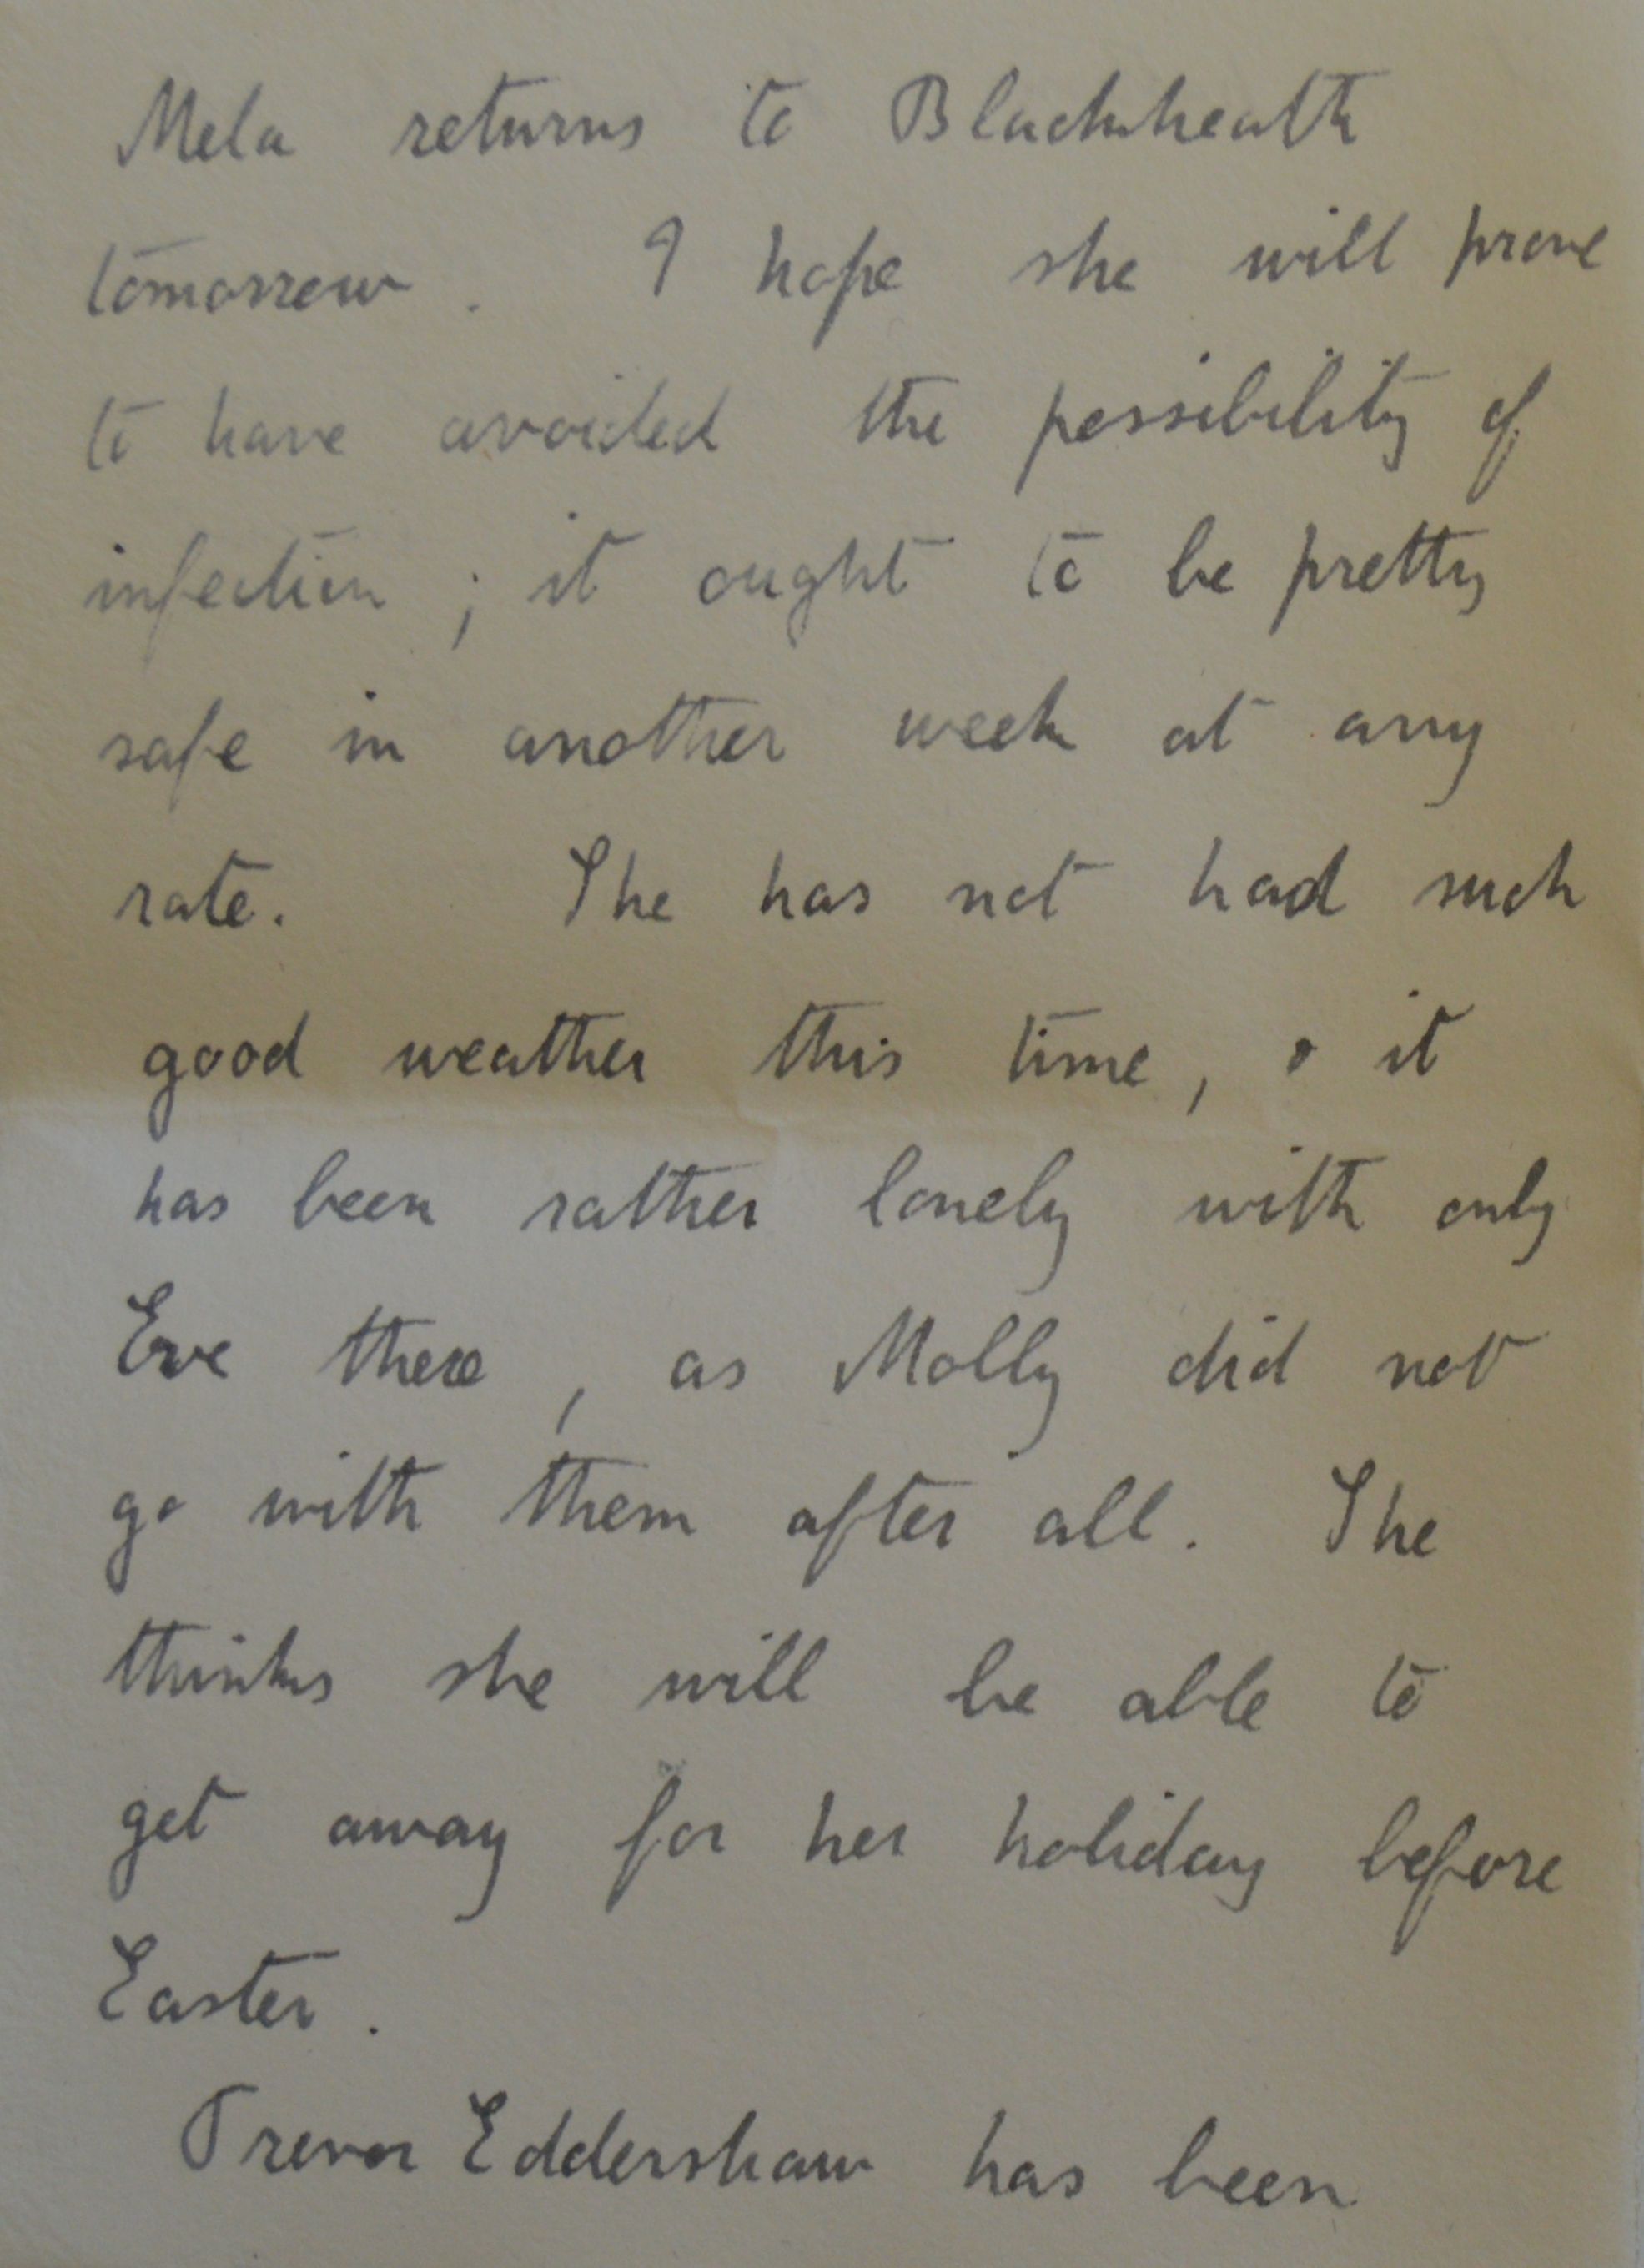 Mela returns to Blackheath
tomorrow. I hope she will prove
to have avoided the possibility of
infection; it ought to be pretty
safe in another week at any
rate. She has not had such
good weather this time, & it
has been rather lonely with only
Eve there, as Molly did not
go with them after all. She
thinks she will be able to
get away for her holiday before
Easter.
Trevor Eddershaw has been